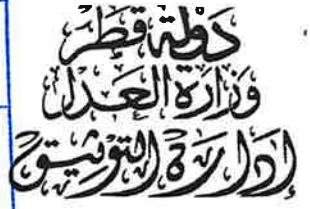 دَولة قطَر
وَزارَة العَدل
إدَارَة التوثِيق